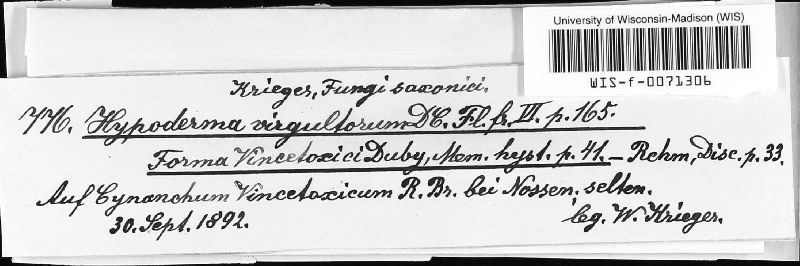 University of Wisconsin-Madison (WIS)
WIS-f-0071306
Krieger, Fungi saxonici.
776. Hypoderma virgultorum DC. Fl. fr. VI. p. 165.
Forma Vincetoxici Duby, Mem. hyst. p. 41. – Rehm, Disc. p. 33.
Auf Cynanchum Vincetoxicum R. Br. bei Nossen. selten.
30. Sept. 1892.
lg. W. Krieger.